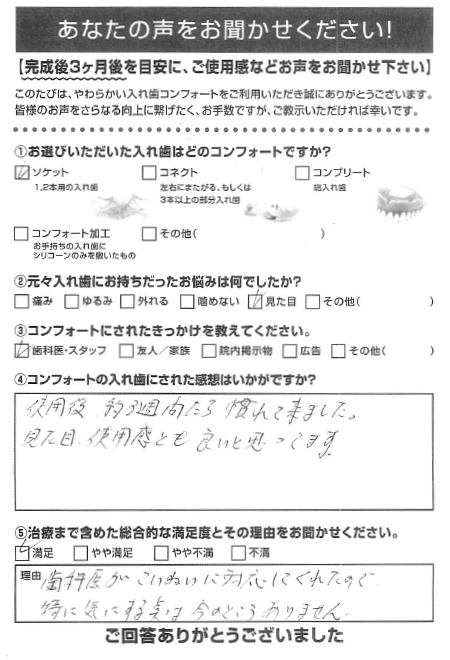 あなたの声をお聞かせください!
【完成後3ヶ月後を目安に、ご使用感などお声をお聞かせ下さい】
このたびは、やわらかい入れ歯コンフォートをご利用いただき誠にありがとうございます。
皆様のお声をさらなる向上に繋げたく、お手数ですが、ご教示いただければ幸いです。
①お選びいただいた入れ歯はどのコンフォートですか?
☑ソケット □コネクト □コンプリート
1,2本用の入れ歯 左右にまたがる、もしくは 総入れ歯
3本以上の部分入れ歯
□コンフォート加工 □その他( )
お手持ちの入れ歯に
シリコーンのみを敷いたもの
②元々入れ歯にお持ちだったお悩みは何でしたか?
□痛み □ゆるみ □外れる □噛めない ☑見た目 □その他( )
③コンフォートにされたきっかけを教えてください。
☑歯科医・スタッフ □友人／家族 □院内掲示物 □広告 □その他( )
④コンフォートの入れ歯にされた感想はいかがですか?
使用後、約3週間たち慣れて来ました。
見た目、使用感とも良いと思ってます。
⑤治療まで含めた総合的な満足度とその理由をお聞かせください。
☑満足 □やや満足 □やや不満 □不満
理由 歯科医がていねいに対応してくれたので
特に気にする点は今のところありません。
ご回答ありがとうございました